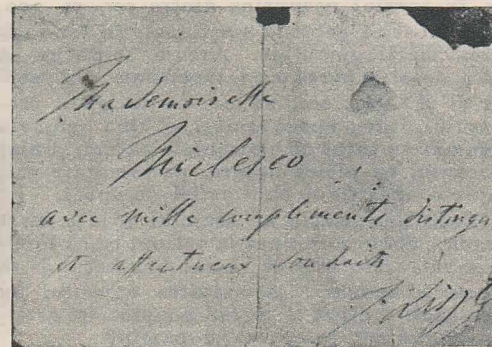 Mademoiselle
Miclesco
avec mille compliments distingu
et affectueux souhaits
F. Liszt